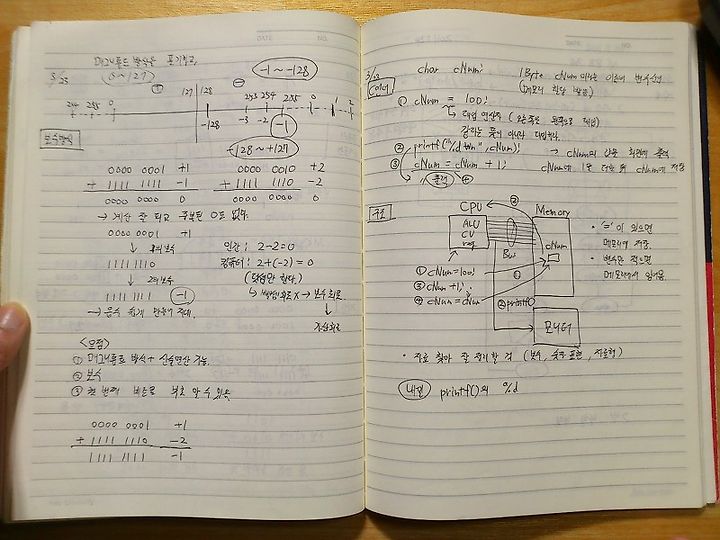 3/25
매그니튜드 방식을 포기하고,
(0~127)
-1 ~ -128
127 | 128
253 254 255 0 1 2
-128 -3 -2 -1
-128 ~ +127
보수방식
0000 0001 +1
+ 1111 1111 -1
0000 0000 0
0000 0010 +2
+ 1111 1110 -2
0000 0000 0
→ 계산 잘 되고 중복된 0도 없다.
0000 0001 +1
↓ → 1의 보수
1111 1110
↓ → 2의 보수
1111 1111 -1
인간: 2-2=0
컴퓨터: 2+(-2)=0
(덧셈만 한다.)
↳ 뺄셈회로X → 보수회로
↓
가산회로
<요점>
① 매그니튜드 방식 + 산술연산 가능.
② 보수
③ 첫 번째 비트로 부호 알 수 있음
0000 0001 +1
+ 1111 1110 -2
1111 1111 -1
char cNum;
1Byte cNum이라는 이름의 변수선언
(메모리 할당 받음)
① cNum = 100;
↳ 대입 연산자 (오른쪽을 왼쪽으로 대입)
같다는 뜻이 아니라 대입하라.
② printf("%d \n", cNum);
→ cNum의 값을 화면에 출력
③ cNum = cNum + 1;
cNum에 1을 더한 뒤 cNum에 저장
출력 ④
구조
CPU
②
Memory
ALU
CU
reg.
Bus
cNum
①
① cNum=100;
③ cNum+1;
④ cNum=cNum
② printf()
모니터
• '='이 있으면
메모리에 저장.
• 변수만 적으면
메모리에서 읽어옴.
• 자료 찾아 잘 정리할 것 (보수, 숫자 표현, 자료형)
내일 printf()의 %d